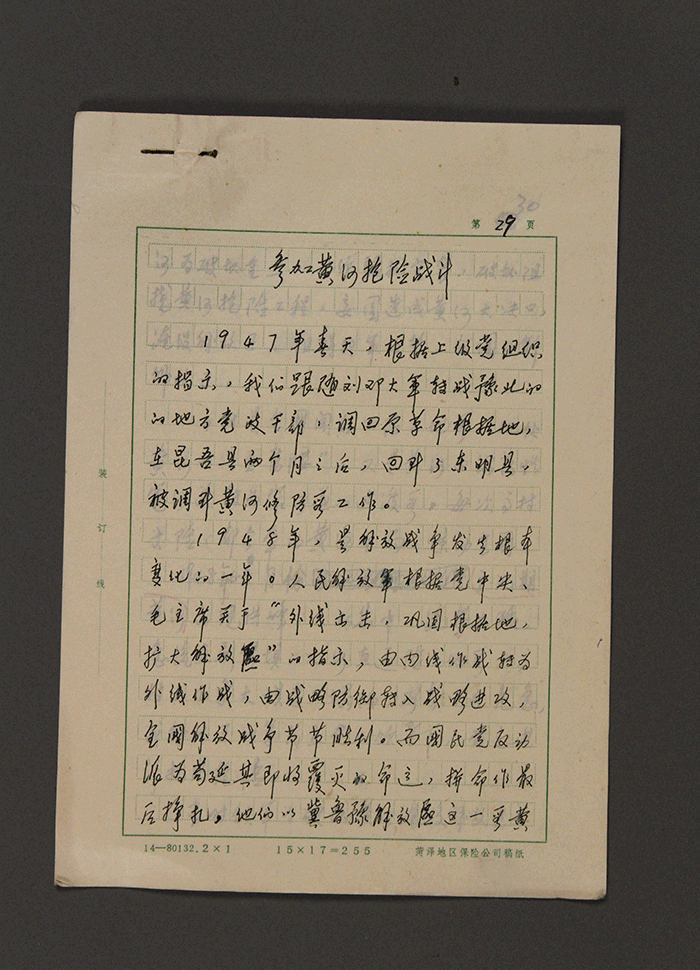 30
第 29 页
参加黄河抢险战斗
1947年春天，根据上级党组织
的指示，我们跟随刘邓大军转战豫北的
的地方党政干部，调回原革命根据地，
在昆吾县两个月之后，回到了东明县，
被调到黄河修防处工作。
1945年，是解放战争发生根本
变化的一年。人民解放军根据党中央、
毛主席关于“外线出击，巩固根据地，
扩大解放区”的指示，由内线作战转为
外线作战，由战略防御转入战略进攻，
全国解放战争节节胜利。而国民党反动
派为苟延其即将覆灭的命运，拼命作最
后挣扎。他们以冀鲁豫解放区这一带黄
装
订
线
14—80132.2×1 15×17=255 菏泽地区保险公司稿纸